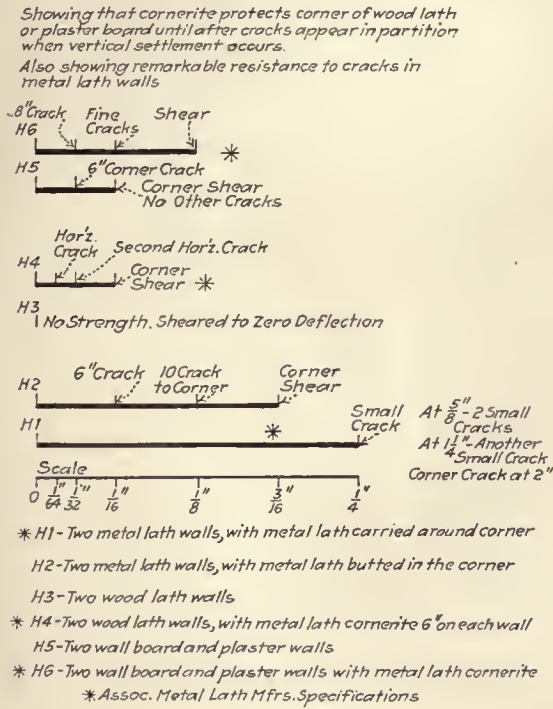 Showing that cornerite protects corner of wood lath
or plaster board until after cracks appear in partition
when vertical settlement occurs.
Also showing remarkable resistance to cracks in
metal lath walls
.8" Crack Fine Cracks Shear
H6 *
H5 6" Corner Crack
Corner Shear
No Other Cracks
Hor'z. Crack Second Hor'z. Crack
H4 Corner Shear *
H3 No Strength. Sheared to Zero Deflection
6" Crack 10 Crack to Corner Corner Shear
H2
H1 * Small Crack
At 5/8" - 2 Small
Cracks
At 1 1/4" - Another
Small Crack
Corner Crack at 2"
Scale
0 1/64" 1/32" 1/16" 1/8" 3/16" 1/4"
* H1 - Two metal lath walls, with metal lath carried around corner
H2 - Two metal lath walls, with metal lath butted in the corner
H3 - Two wood lath walls
* H4 - Two wood lath walls, with metal lath cornerite 6" on each wall
H5 - Two wall board and plaster walls
* H6 - Two wall board and plaster walls with metal lath cornerite
* Assoc. Metal Lath Mfrs. Specifications